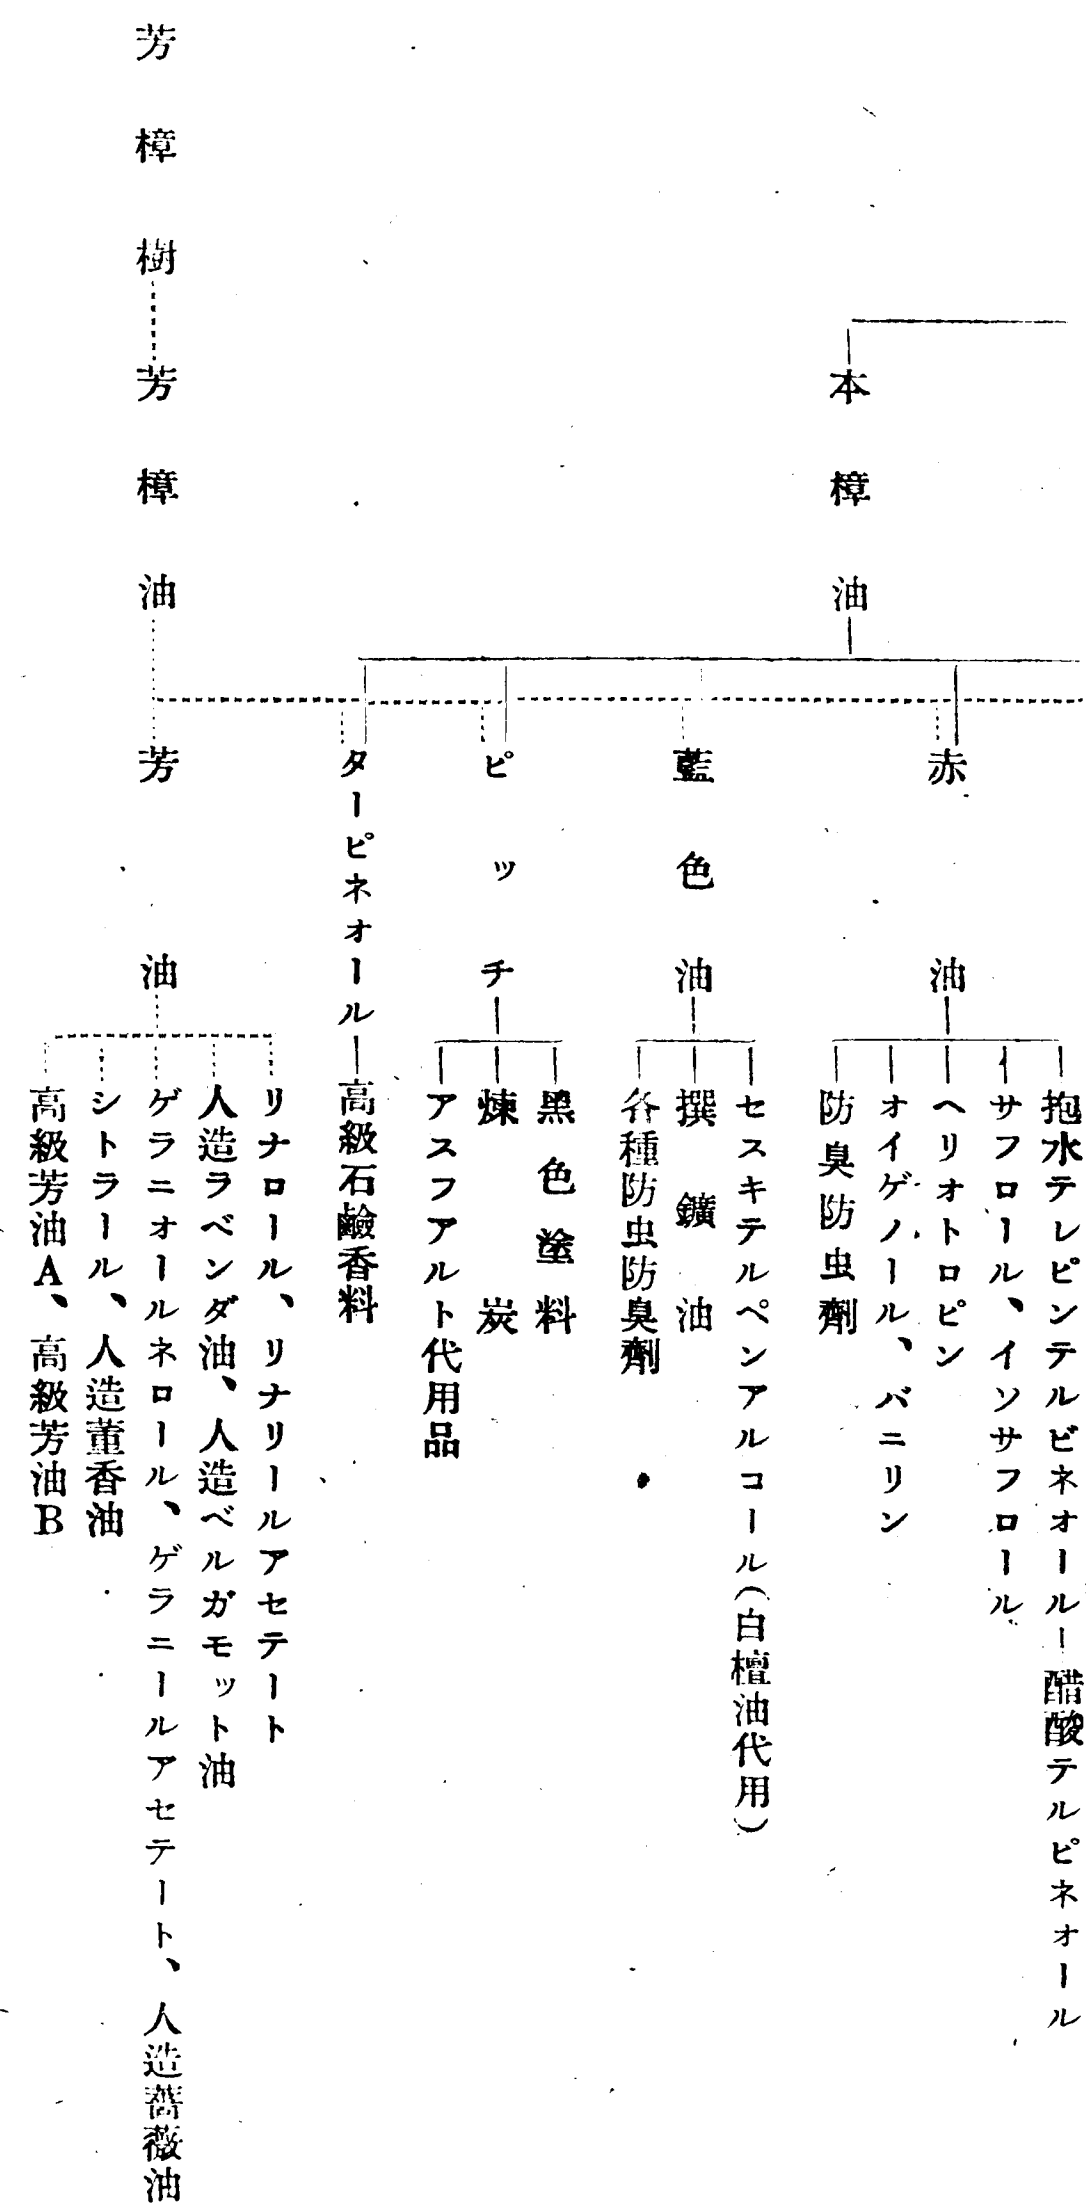 本樟油
赤油
抱水テレピンテルビネオール―醋酸テルピネオール
サフロール、イソサフロール
ヘリオトロピン
オイゲノール、バニリン
防臭防虫劑
藍色油
セスキテルペンアルコール(白檀油代用)
撰鑛油
各種防虫防臭劑
ピッチ
黑色塗料
煉炭
アスフアルト代用品
ターピネオール―高級石鹼香料
芳樟樹
芳樟油
芳油
リナロール、リナリールアセテート
人造ラベンダ油、人造ベルガモット油
ゲラニオールネロール、ゲラニールアセテート、人造薔薇油
シトラール、人造菫香油
高級芳油A、高級芳油B